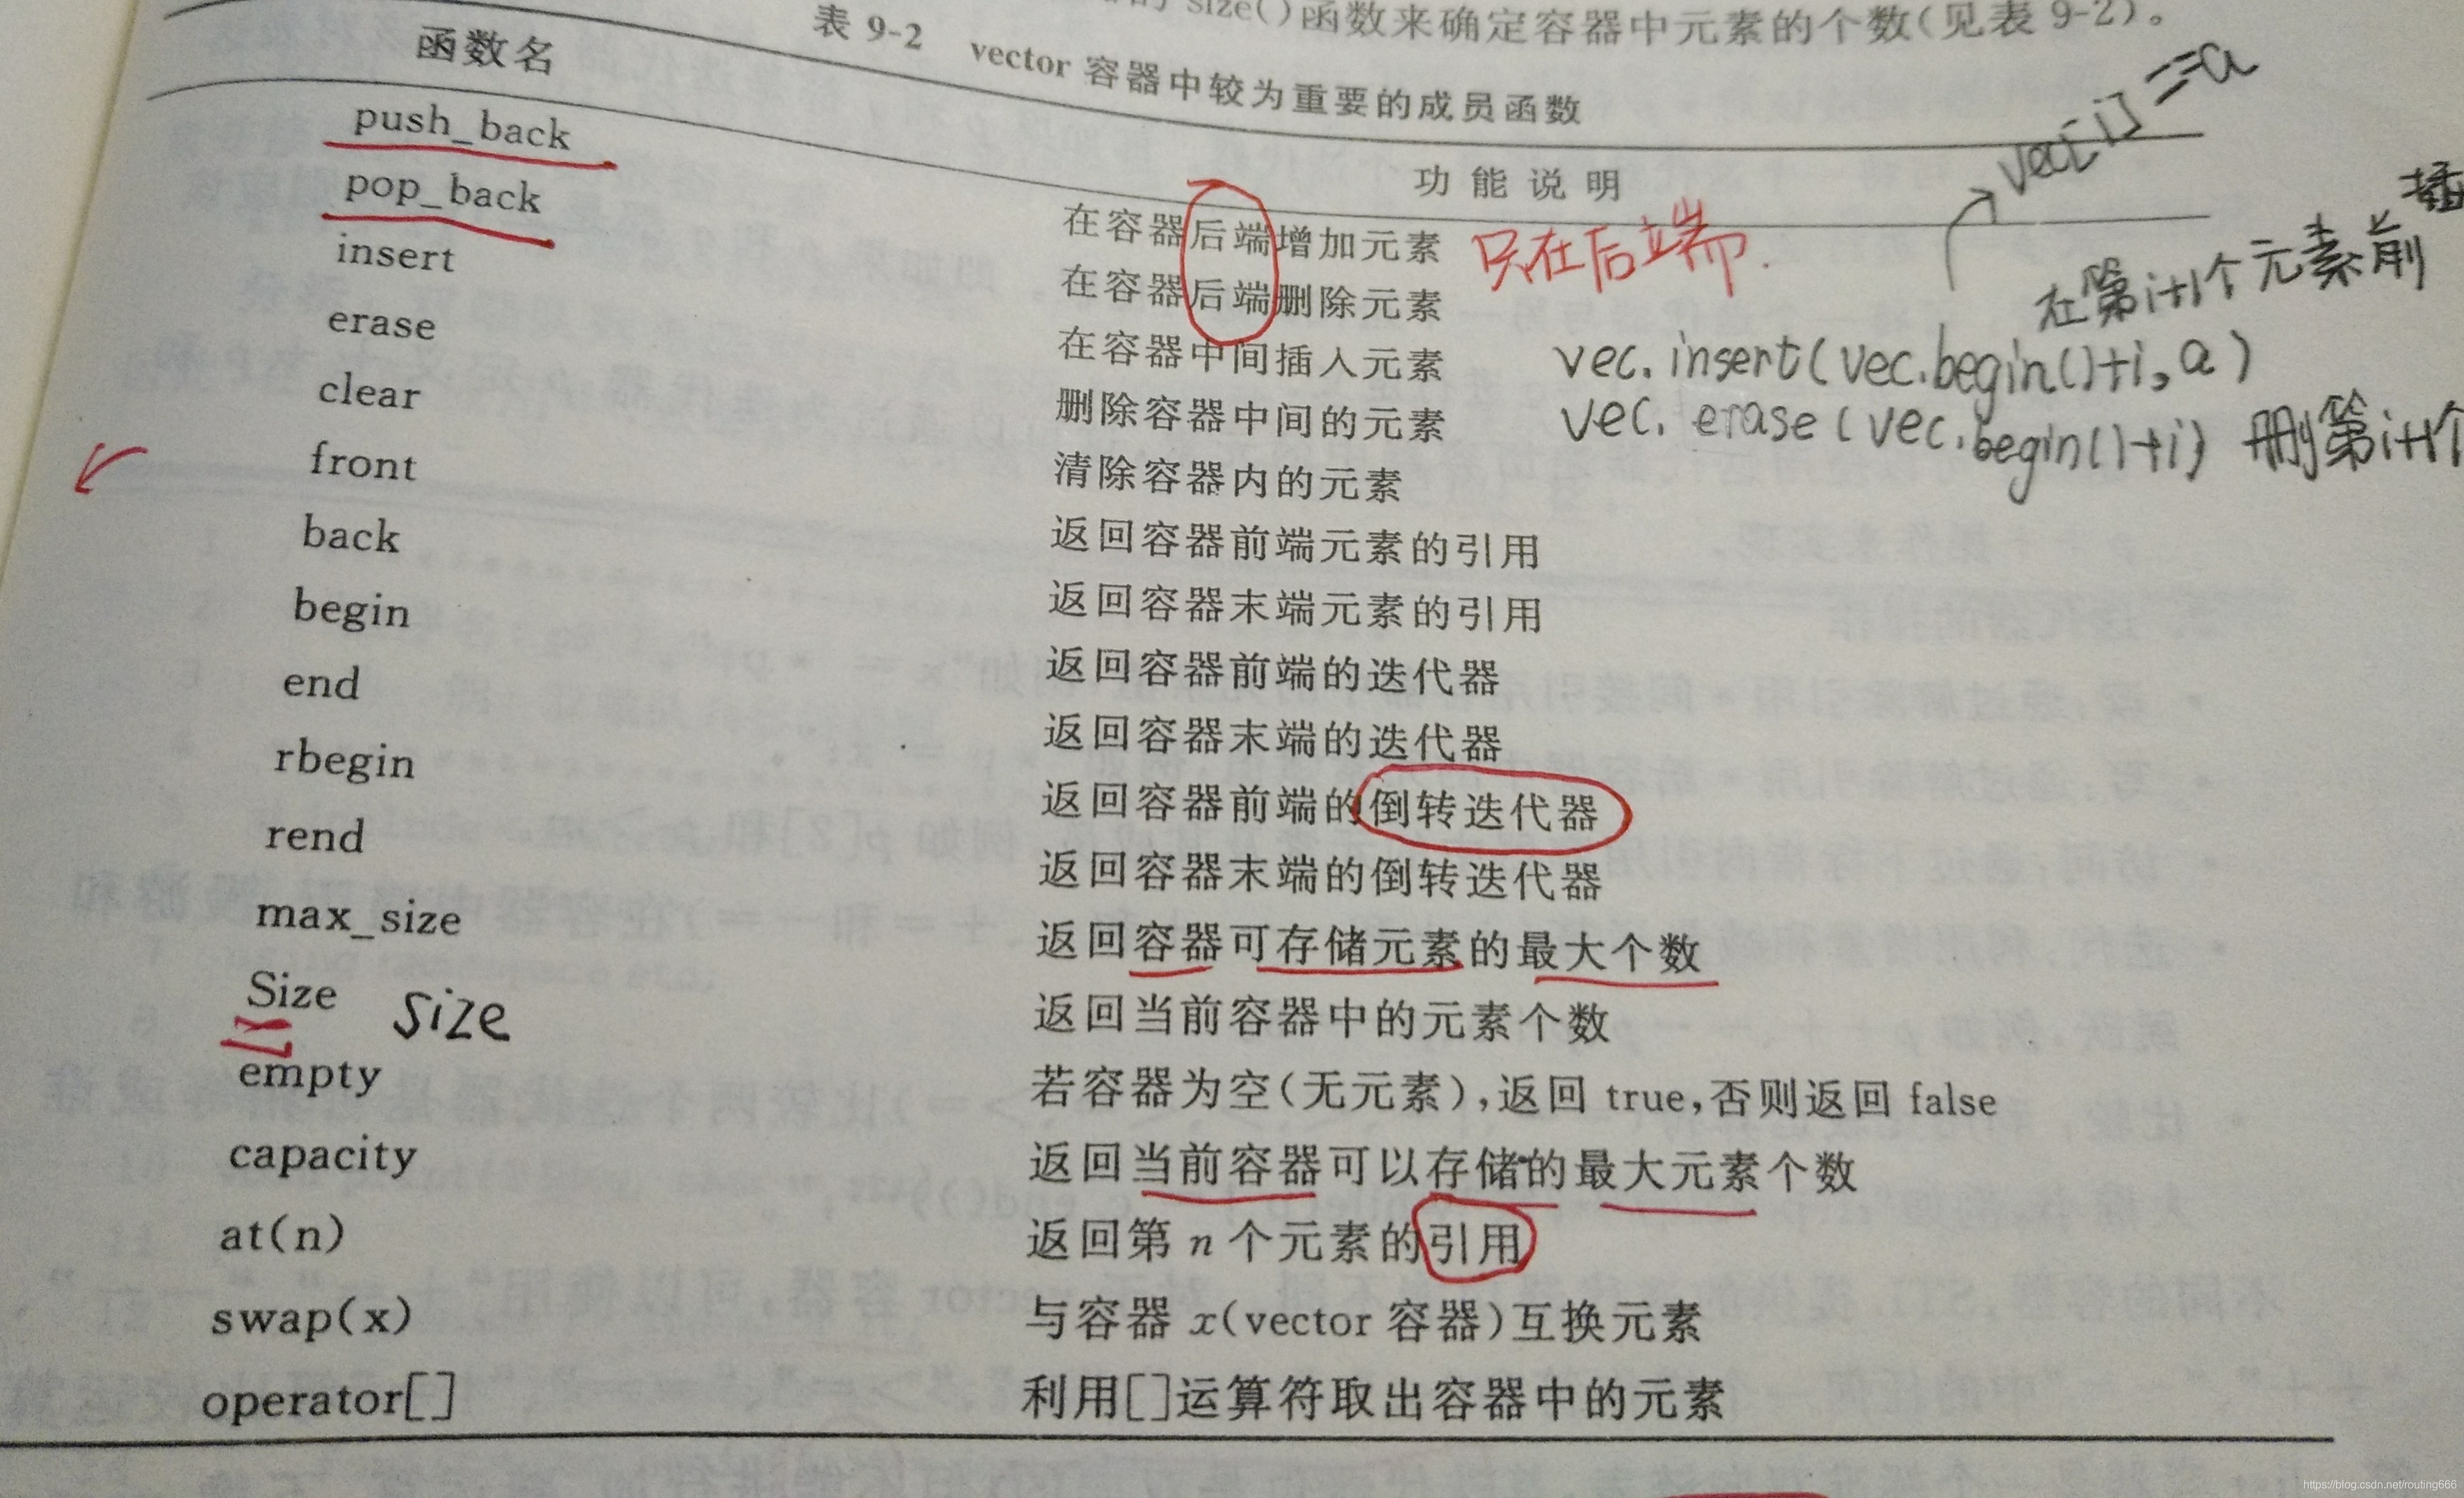 size()函数来确定容器中元素的个数(见表 9-2)。
表 9-2 vector 容器中较为重要的成员函数
函数名 功能说明
push_back 在容器后端增加元素 只在后端.
pop_back 在容器后端删除元素
vec[i]=a
在第i+1个元素前插
insert 在容器中间插入元素 vec.insert(vec.begin()+i,a)
erase 删除容器中间的元素 vec.erase(vec.begin()+i) 删第i+1个
clear 清除容器内的元素
front 返回容器前端元素的引用
back 返回容器末端元素的引用
begin 返回容器前端的迭代器
end 返回容器末端的迭代器
rbegin 返回容器前端的倒转迭代器
rend 返回容器末端的倒转迭代器
max_size 返回容器可存储元素的最大个数
Size size 返回当前容器中的元素个数
empty 若容器为空(无元素),返回 true,否则返回 false
capacity 返回当前容器可以存储的最大元素个数
at(n) 返回第 n 个元素的引用
swap(x) 与容器 x(vector 容器)互换元素
operator[] 利用[]运算符取出容器中的元素
https://blog.csdn.net/routing666